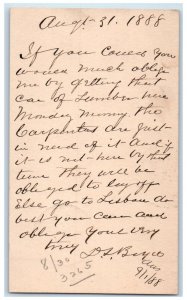 Augt 31. 1888
If you could you
would much oblige
me by getting that
car of Lumber here
Monday Morng the
Carpenters are just
in need of it and if
it is not here by that
time they will be
obliged to lay off
Else go to Lisbon do
best you can and
oblige yours very
truly D S
8/30
3265
Ans
9/1/88